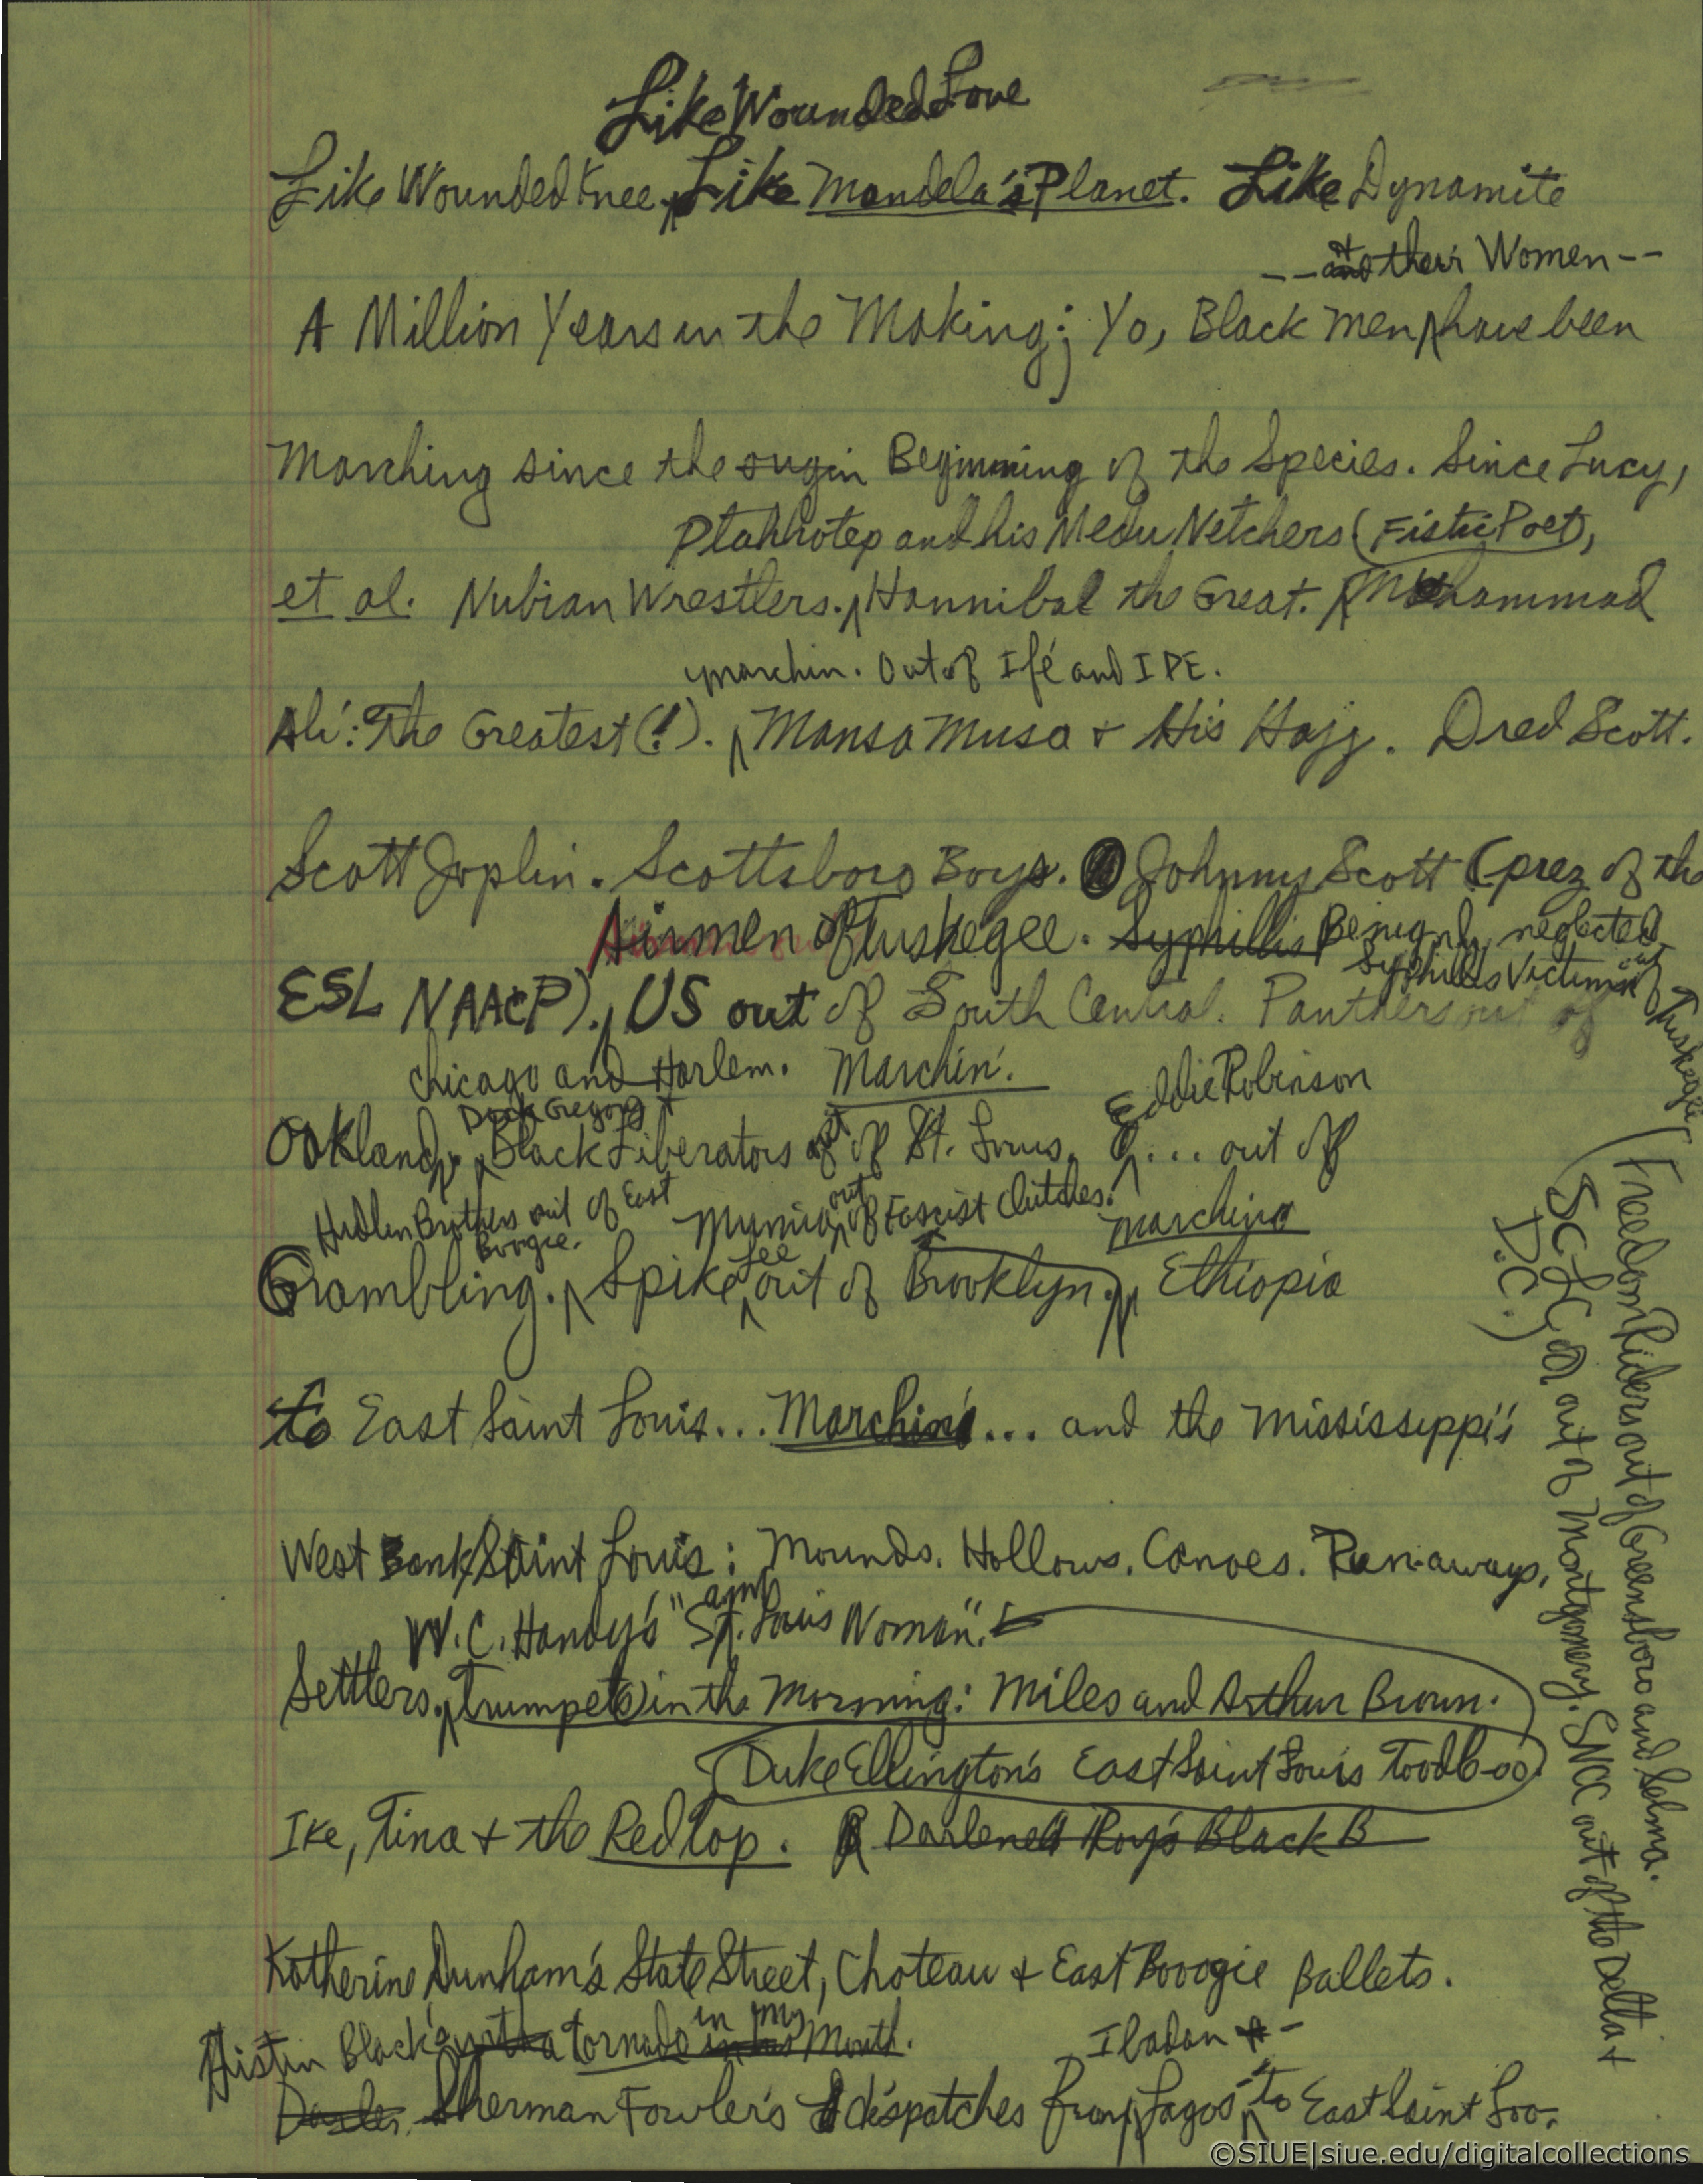 Like Wounded Love
Like Wounded Knee. Like Mandela's Planet. Like Dynamite
-- and their Women --
A Million Years in the Making; Yo, Black men have been
Marching since the origin Beginning of the Species. Since Lucy,
Ptahhotep and his Medu Netchers (Fistic Poet),
et al. Nubian Wrestlers. Hannibal the Great. Muhammad
marchin. Out of Ifé and IPE.
Ali: The Greatest (!). Mansa Musa + His Hajj. Dred Scott.
Scott Joplin. Scottsboro Boys. Johnny Scott (prez of the
Airmen of Tuskegee. Syphillis Benignly neglected
Syphillis Victims out of Tuskegee
ESL NAACP). US out of South Central. Panthers out of
Chicago and Harlem. Marchin'.
Dick Gregory +
Eddie Robinson
Oakland. Black Liberators out of St. Louis. ... out of
Hudlin Brothers out of East Boogie.
Mumia out of Fascist Clutches.
marchin
Grambling. Spike Lee out of Brooklyn. Ethiopia
to East Saint Louis... Marchin'... and the Mississippi's
West Bank/Saint Louis: Mounds. Hollows. Canoes. Run-aways,
W.C. Handy's "St. Louis Woman".
Settlers. Trumpet(s) in the Morning: Miles and Arthur Brown.
Duke Ellington's East Saint Louis Toodle-oo.
Ike, Tina + the Red Top. Darlene Roy's Black B
Katherine Dunham's State Street, Choteau + East Booogie Ballets.
Austin Black's tornado in my Mouth.
Ibadan -
Sherman Fowler's despatches from Lagos - to East Saint Loo.
(Freedom Riders out of Greensboro and Selma.
SCLC out of Montgomery. SNCC out of the Delta +
D.C.)
©SIUE|siue.edu/digitalcollections